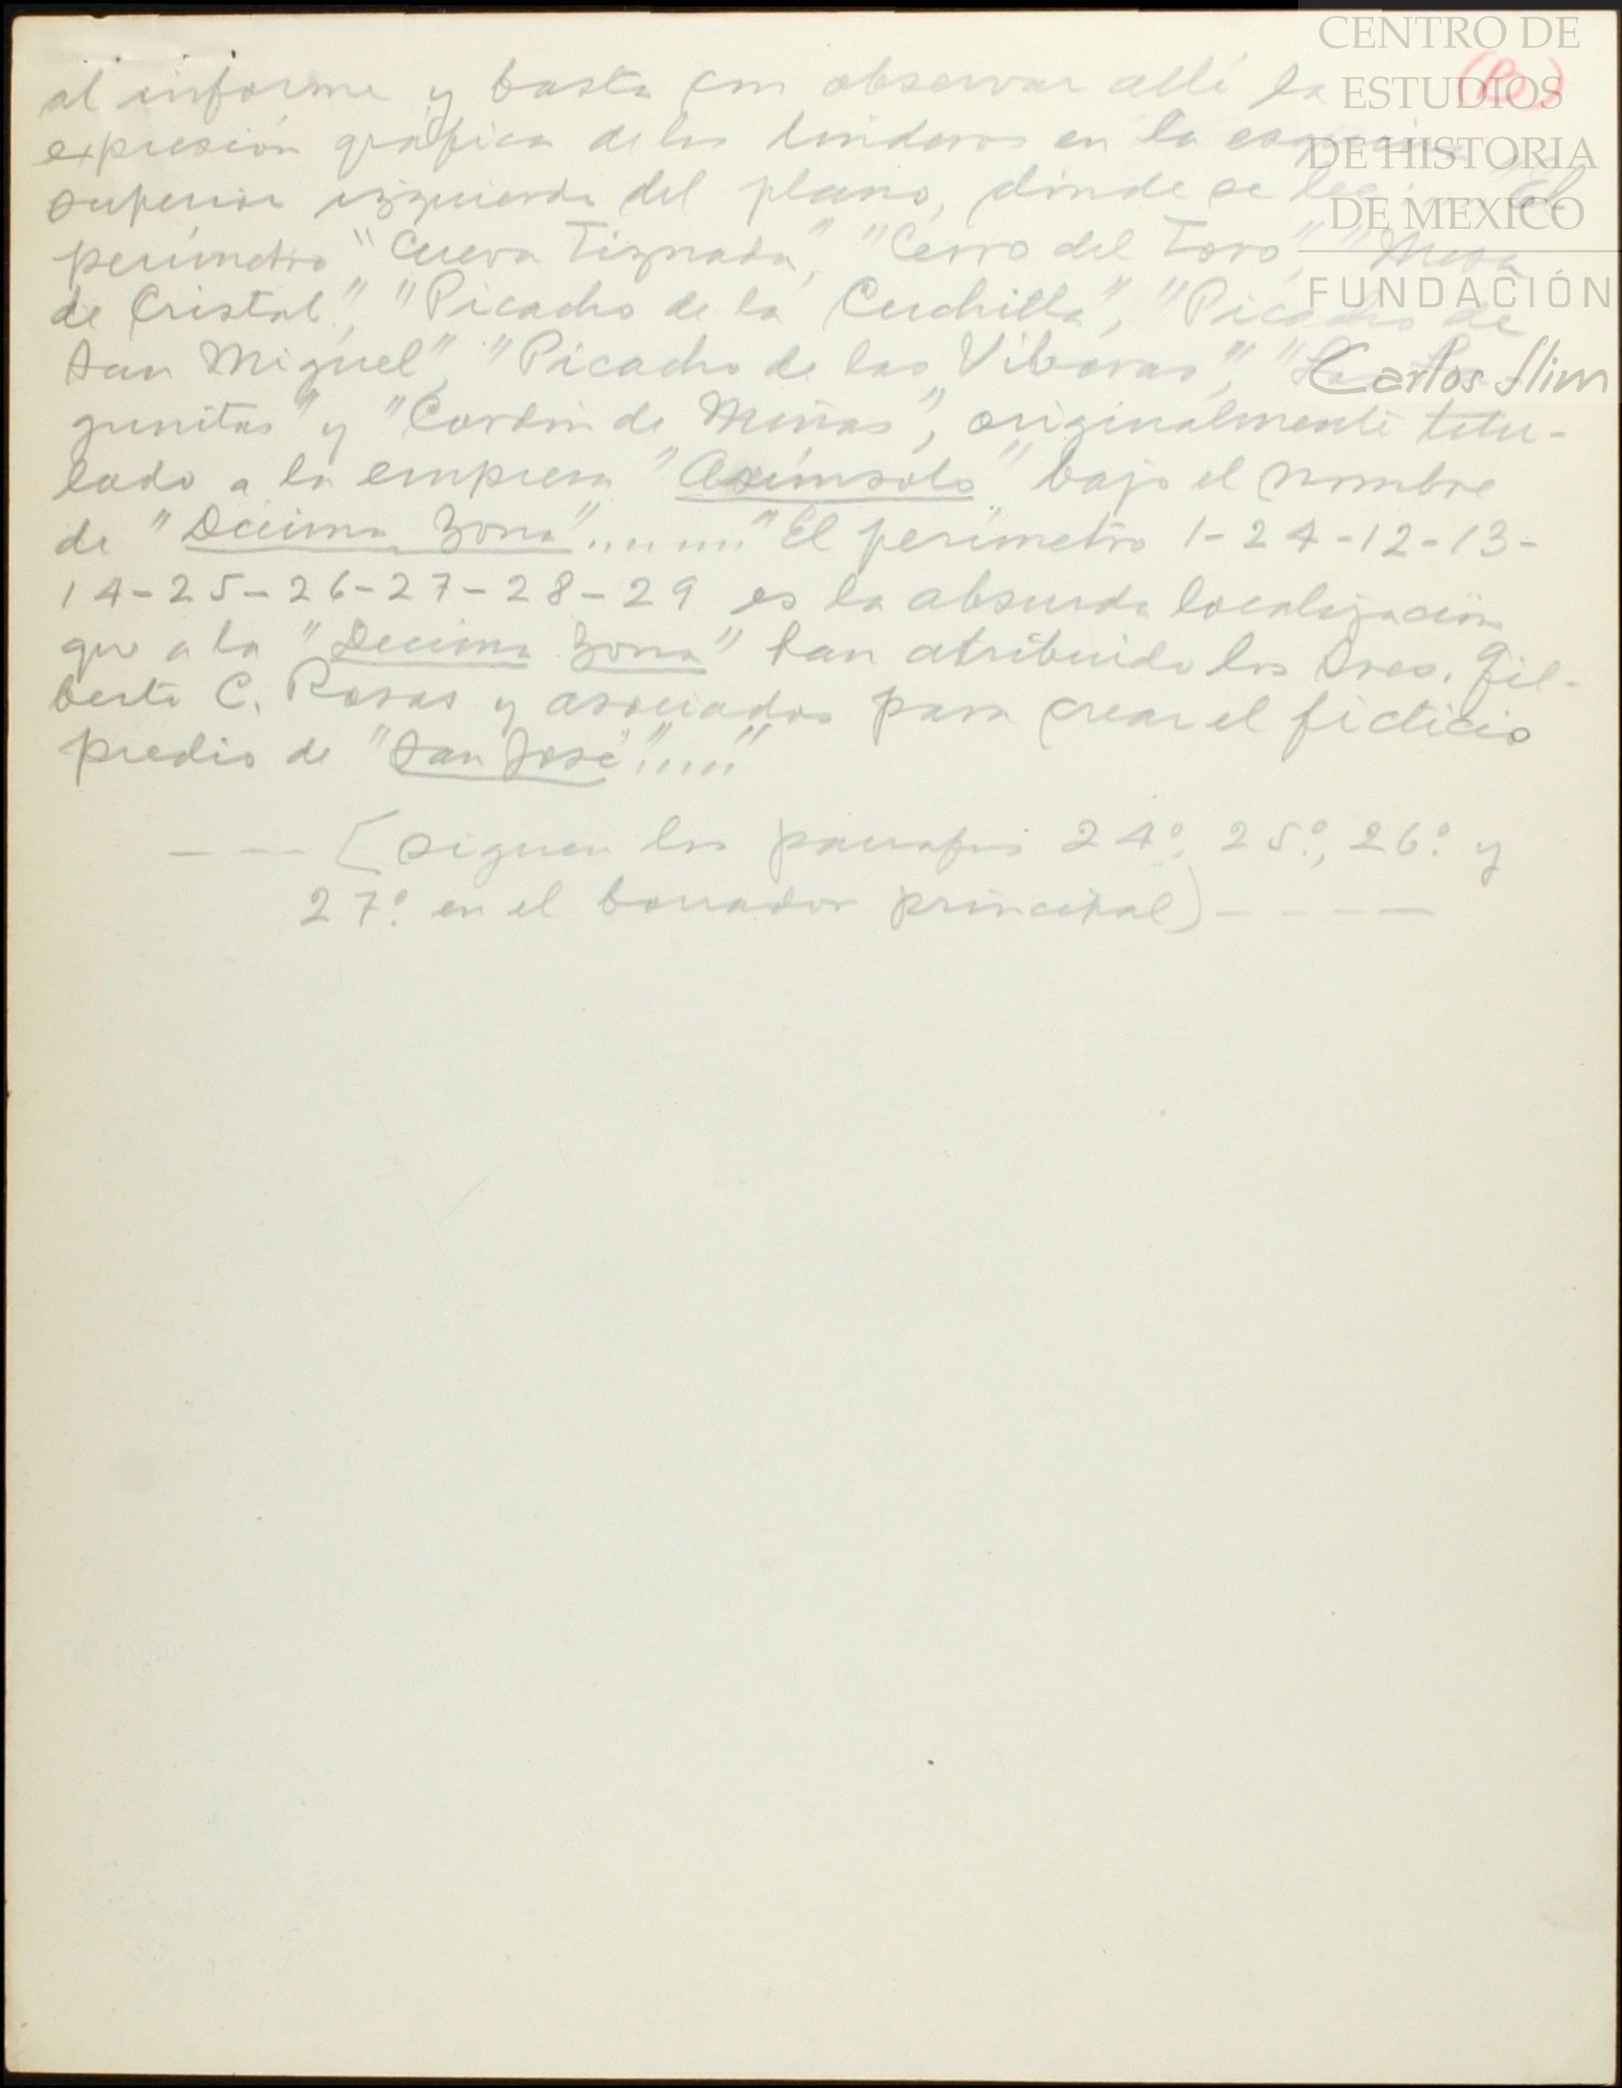 CENTRO DE
ESTUDIOS
DE HISTORIA
DE MEXICO
FUNDACIÓN
Carlos Slim
al informe y basta con observar allí la
expresión gráfica de los linderos en la esquina
superior izquierda del plano, dónde se lee: "El
perímetro "Cueva Tiznada", "Cerro del Toro", "Mesa
de Cristal", "Picacho de la Cuchilla", "Picacho de
San Miguel", "Picacho de las Viboras",
gunitas" y "Cordón de Minas", originalmente titu-
lado a la empresa "Asúnsolo" bajo el nombre
de "Decima Zona"........"El perímetro 1-24-12-13-
14-25-26-27-28-29 es la absurda localización
que a la "Decima Zona" han atribuido los Sres. Gil-
berto C. Rosas y asociados para crear el ficticio
predio de "San José"....."
--- (siguen los parrafos 24º, 25º, 26º y
27º en el borrador principal) ----